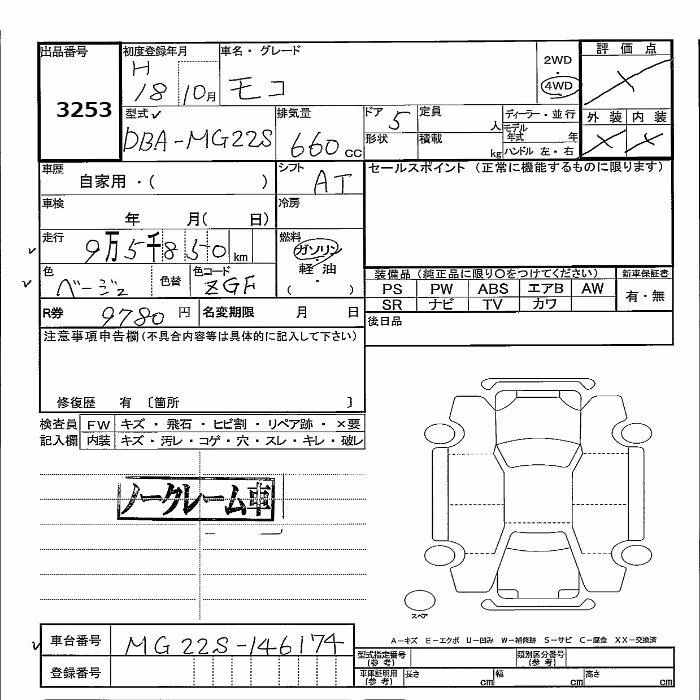 出品番号 初度登録年月 車名・グレード 2WD 評価点
3253 H 18 10月 モコ ・ 4WD
型式 排気量 ドア 5 定員 人 ディーラー・並行 外装 内装
DBA-MG22S 660cc 形状 積載 kg モデル年式 年
ハンドル 左・右
車歴 自家用・( ) シフト AT セールスポイント (正常に機能するものに限ります)
車検 年 月( 日) 冷房
走行 9万5千850km 燃料 ガソリン
軽油
( ・ )
色 ベージュ 色替 色コード ZGF
装備品 (純正品に限り〇をつけてください) 新車保証書
PS PW ABS エアB AW 有・無
SR ナビ TV カワ
R券 9780円 名変期限 月 日 後日品
注意事項申告欄(不具合内容等は具体的に記入して下さい)
修復歴 有 〔箇所 〕
検査員 FW キズ・飛石・ヒビ割・リペア跡・×要
記入欄 内装 キズ・汚レ・コゲ・穴・スレ・キレ・破レ
ノークレーム車
スペア
A-キズ E-エクボ U-凹み W-補修跡 S-サビ C-腐食 XX-交換済
車台番号 MG22S-146174
登録番号
型式指定番号(参考) 類別区分番号(参考)
車庫証明用(参考) 長さ cm 幅 cm 高さ cm